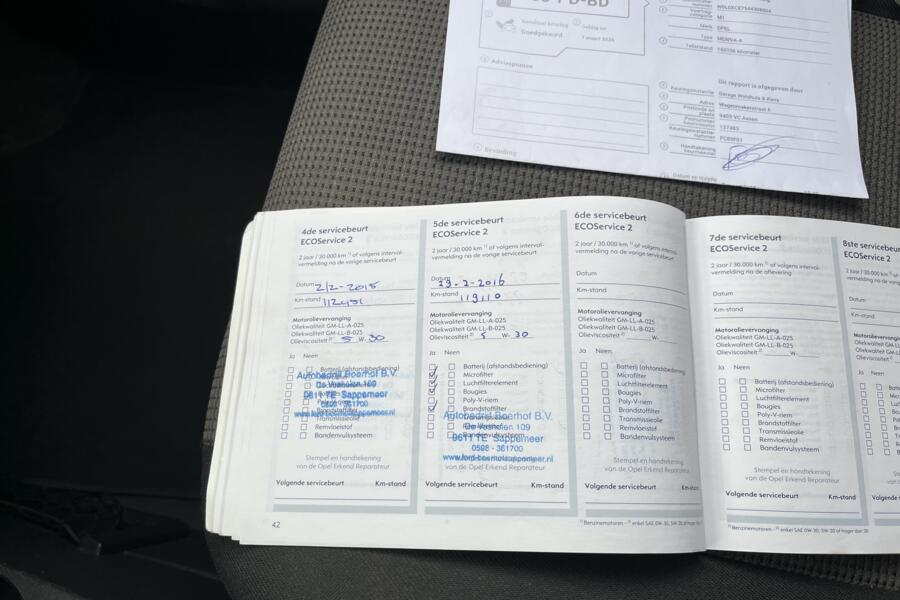 M1
Merk OPEL
Type MERIVA-A
Tellerstand
kilometer
Goedgekeurd
Adviespunten
Dit rapport is afgegeven door
Adres
9403 VC Assen
Bevinding
4de servicebeurt
ECOService 2
2 jaar / 30.000 km 1) of volgens interval-
vermelding na de vorige servicebeurt
Datum 2/2-2015
Km-stand 112451
Motorolievervanging
Oliekwaliteit GM-LL-A-025
Oliekwaliteit GM-LL-B-025
Olieviscositeit 2) 5 W- 30
Ja Neen
Batterij (afstandsbediening)
Autobedrijf Boerhof B.V.
De Vosholen 109
9611 TE Sappemeer
0598 - 361700
Transmissieolie
Remvloeistof
Bandenvulsysteem
Stempel en handtekening
van de Opel Erkend Reparateur
Volgende servicebeurt Km-stand
42
5de servicebeurt
ECOService 2
2 jaar / 30.000 km 1) of volgens interval-
vermelding na de vorige servicebeurt
Datum 29-2-2016
Km-stand 119110
Motorolievervanging
Oliekwaliteit GM-LL-A-025
Oliekwaliteit GM-LL-B-025
Olieviscositeit 2) 5 W- 30
Ja Neen
Batterij (afstandsbediening)
Microfilter
Luchtfilterelement
Bougies
Poly-V-riem
Brandstoffilter
Autobedrijf Boerhof B.V.
De Vosholen 109
9611 TE Sappemeer
0598 - 361700
www.ford-boerhofsappemeer.nl
Bandenvulsysteem
van de Opel Erkend Reparateur
Volgende servicebeurt Km-stand
6de servicebeurt
ECOService 2
2 jaar / 30.000 km 1) of volgens interval-
vermelding na de vorige servicebeurt
Datum
Km-stand
Motorolievervanging
Oliekwaliteit GM-LL-A-025
Oliekwaliteit GM-LL-B-025
Olieviscositeit 2) W-
Ja Neen
Batterij (afstandsbediening)
Microfilter
Luchtfilterelement
Bougies
Poly-V-riem
Brandstoffilter
Transmissieolie
Remvloeistof
Bandenvulsysteem
Stempel en handtekening
van de Opel Erkend Reparateur
Volgende servicebeurt Km-stan
1) Benzinemotoren - 2) enkel SAE 0W-30, 5W-30 of hoger
7de servicebeurt
ECOService 2
2 jaar / 30.000 km 1) of volgens interval-
vermelding na de aflevering
Datum
Km-stand
Motorolievervanging
Oliekwaliteit GM-LL-A-025
Oliekwaliteit GM-LL-B-025
Olieviscositeit 2) W-
Ja Neen
Batterij (afstandsbediening)
Microfilter
Luchtfilterelement
Bougies
Poly-V-riem
Brandstoffilter
Transmissieolie
Remvloeistof
Bandenvulsysteem
Stempel en handtekening
van de Opel Erkend Reparateur
Volgende servicebeurt Km-stand
1) Benzinemotoren - 2) enkel SAE 0W-30, 5W-30 of hoger
8ste servicebeur
ECOService 2
Datum
Km-stand
Ja Neen